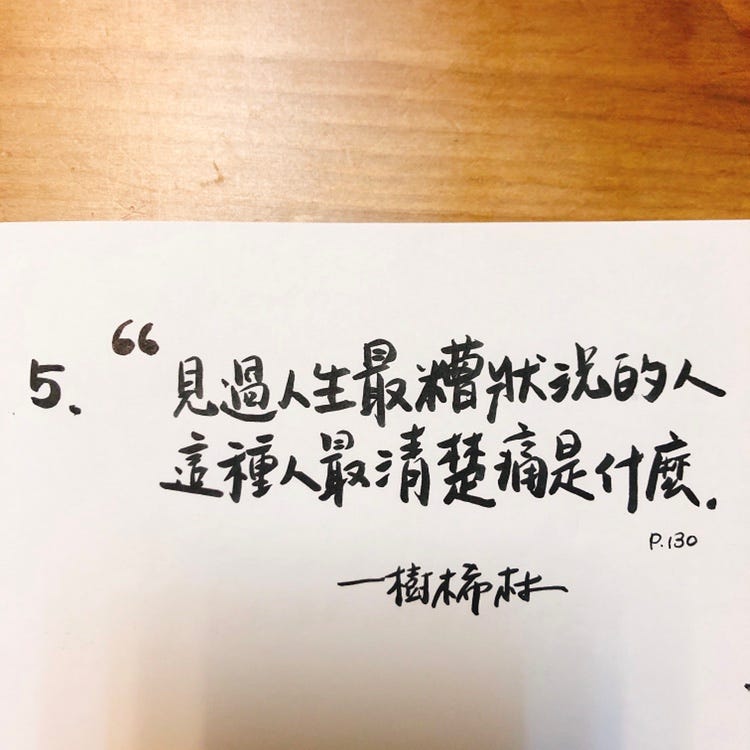 5. “見過人生最糟狀況的人
這種人最清楚痛是什麼.
P.130
—樹木希林